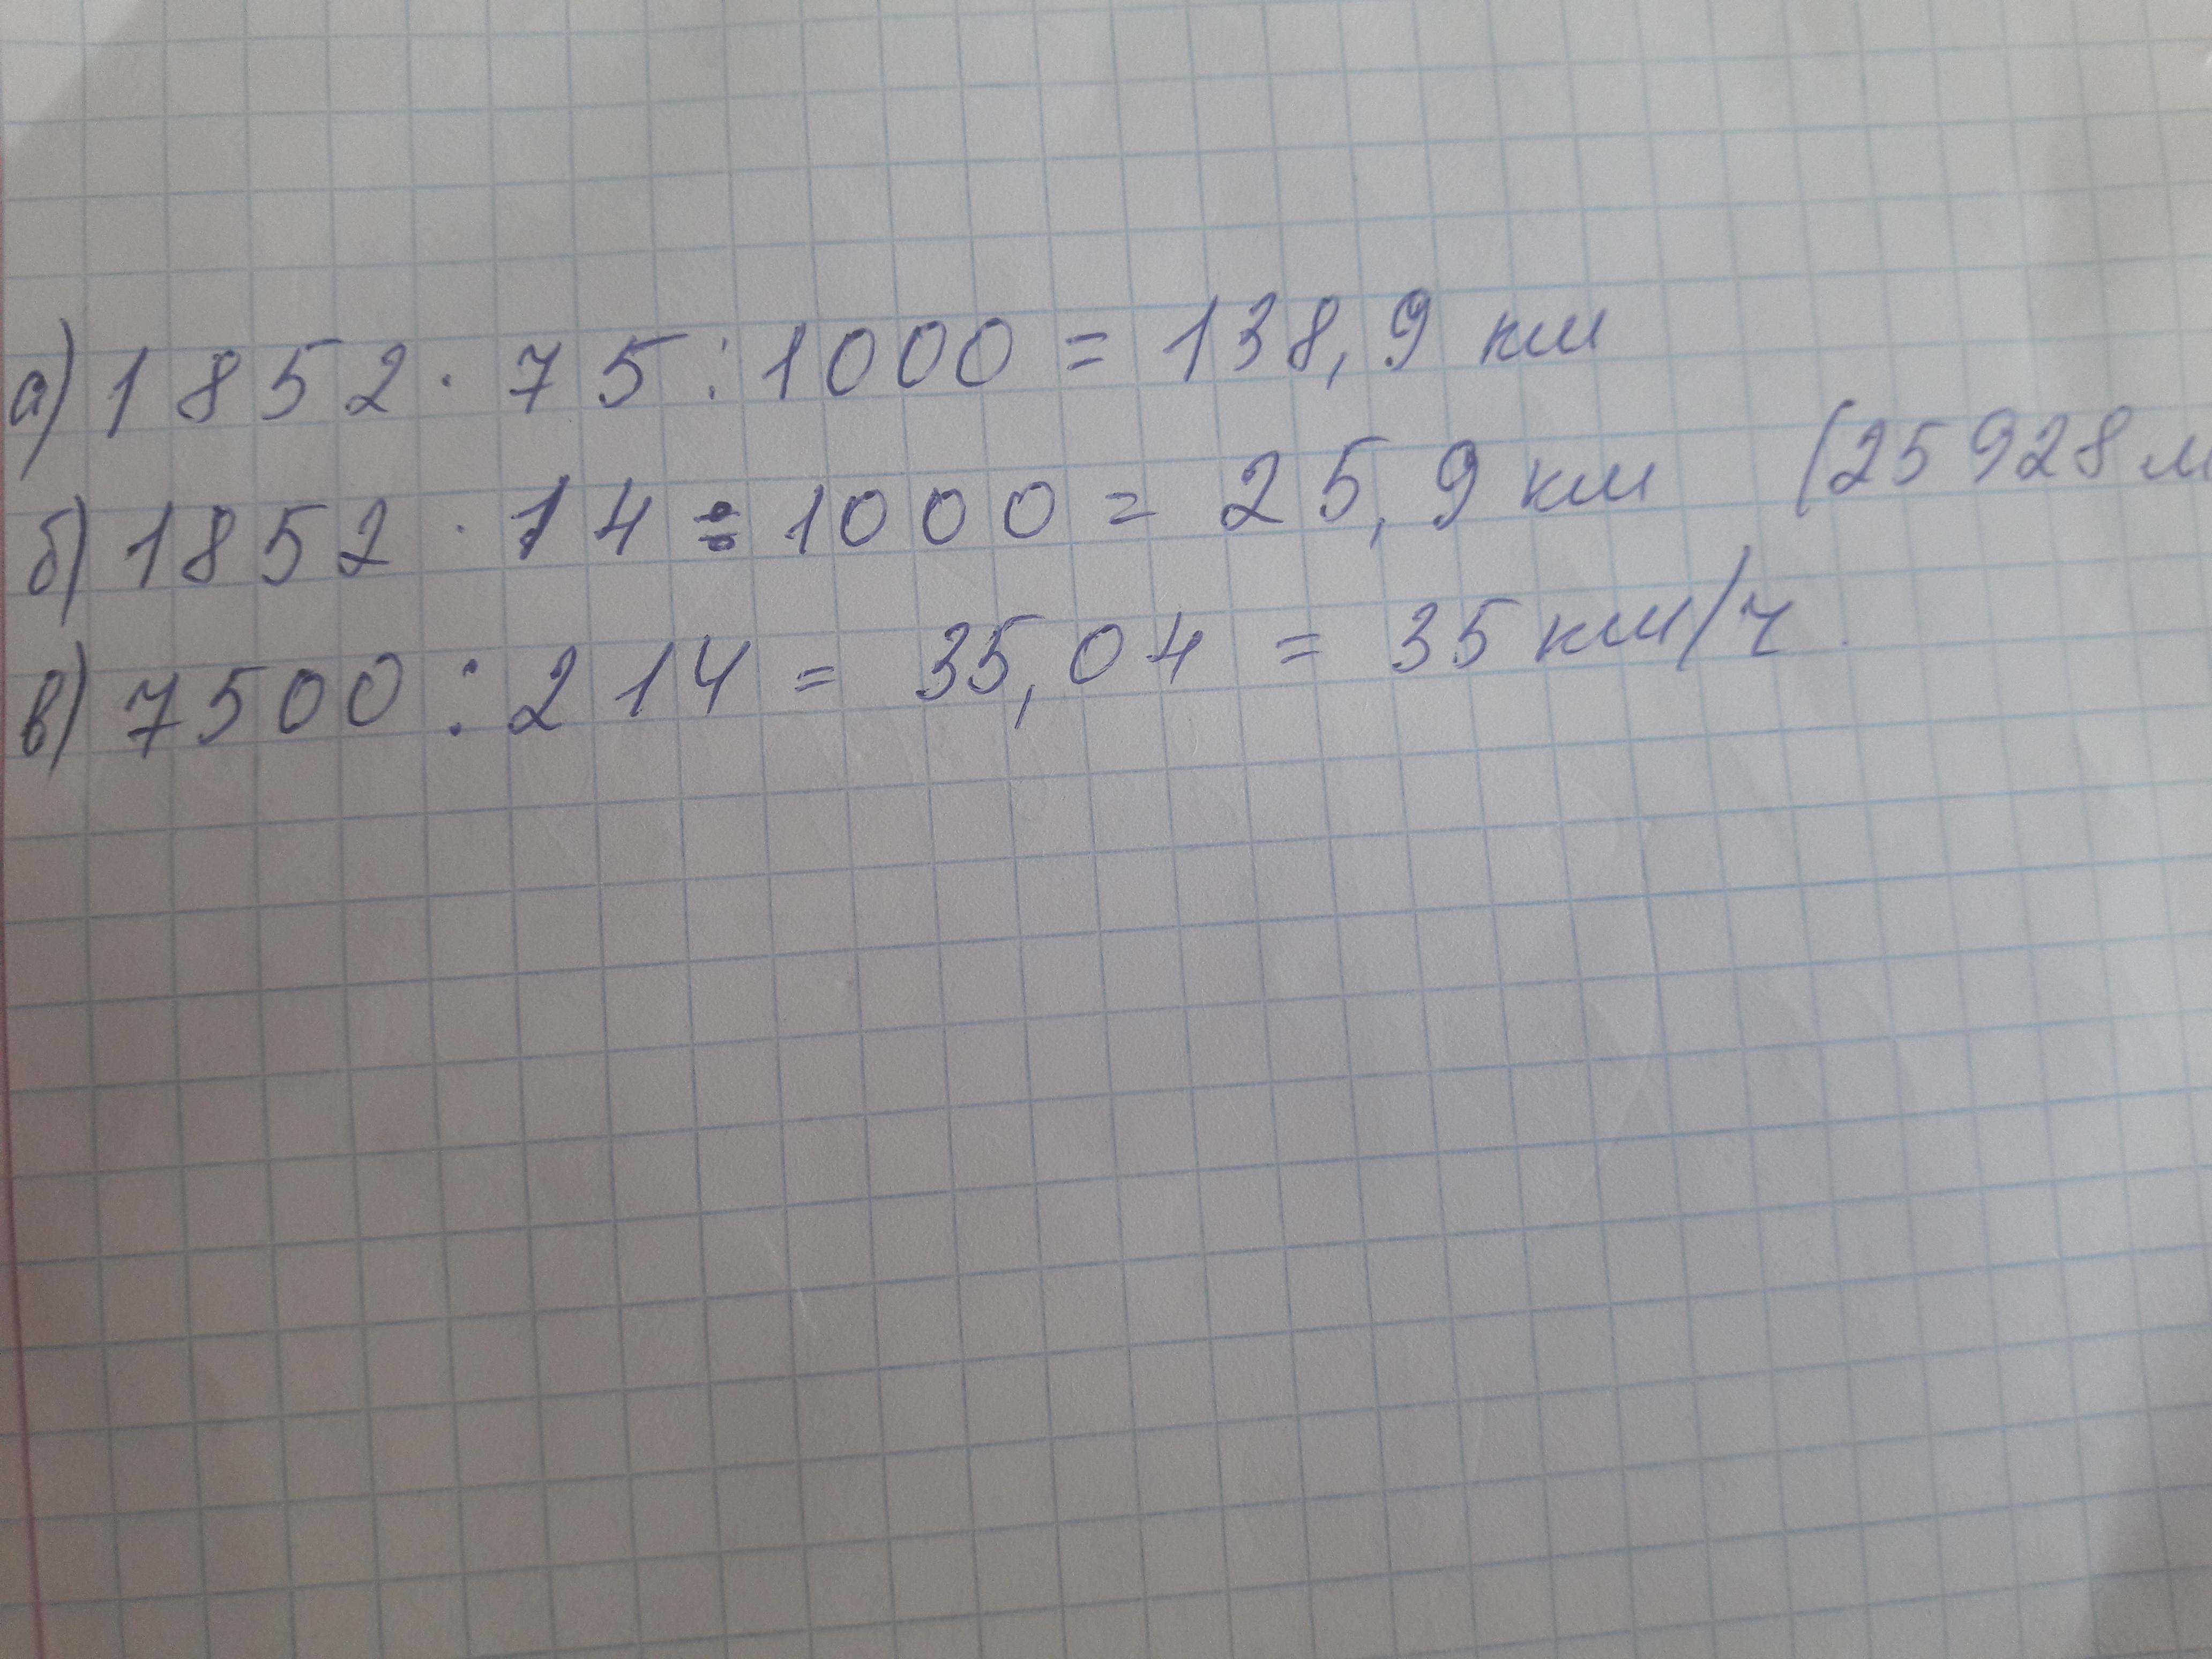 а) 1852 · 75 : 1000 = 138,9 км
б) 1852 · 14 ÷ 1000 = 25,9 км (25928 м
в) 7500 : 214 = 35,04 = 35 км/ч.